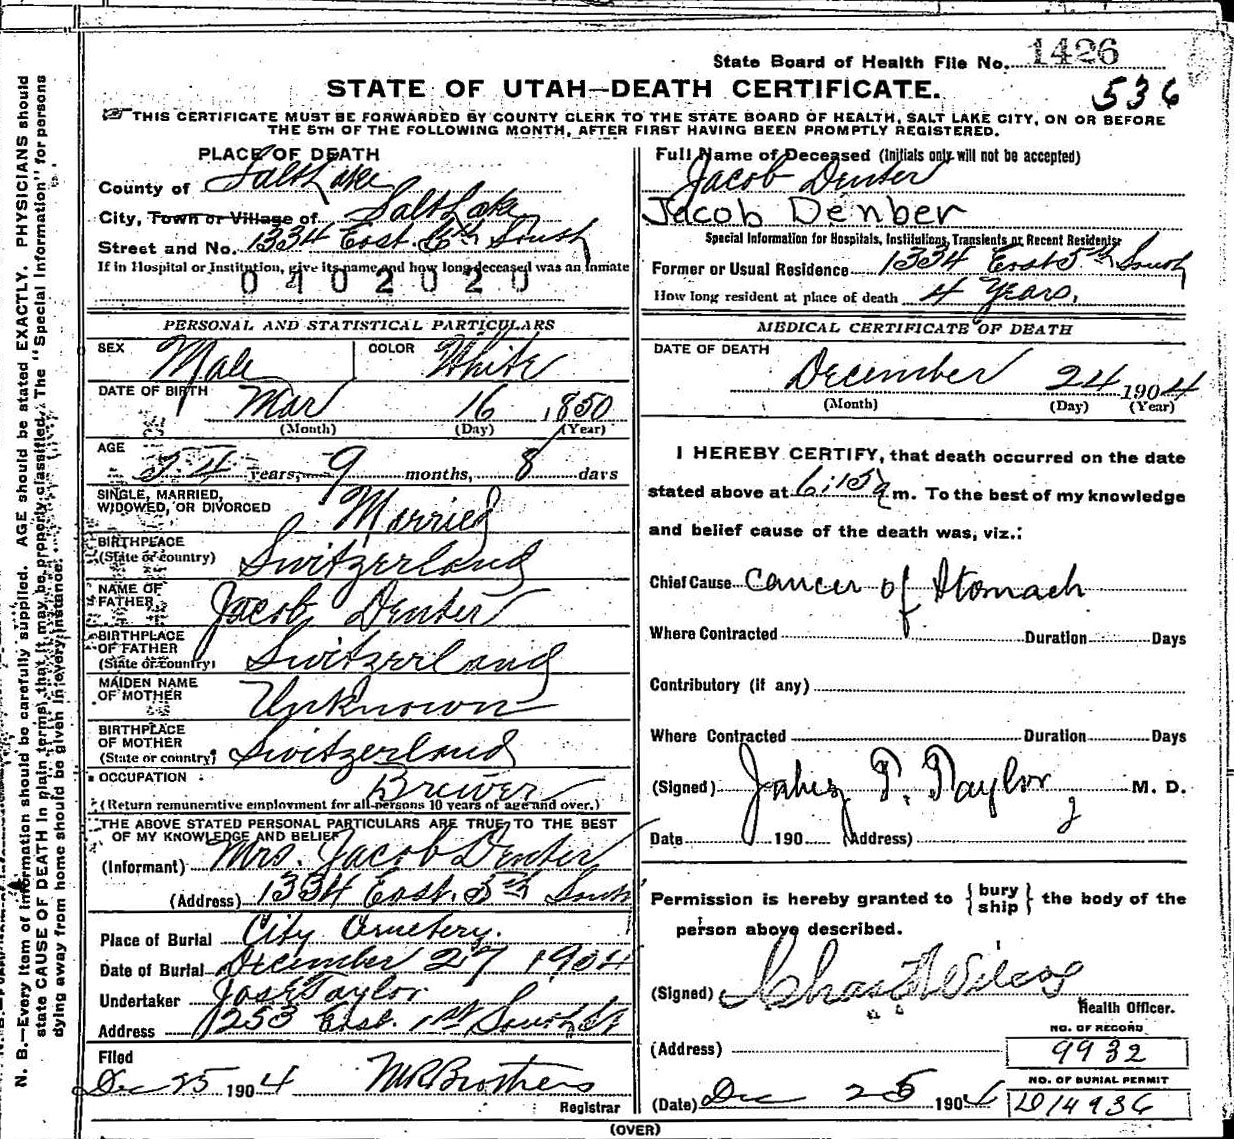 State Board of Health File No. 1426
STATE OF UTAH—DEATH CERTIFICATE.
536
THIS CERTIFICATE MUST BE FORWARDED BY COUNTY CLERK TO THE STATE BOARD OF HEALTH, SALT LAKE CITY, ON OR BEFORE
THE 5TH OF THE FOLLOWING MONTH, AFTER FIRST HAVING BEEN PROMPTLY REGISTERED.
N. B.—Every item of information should be carefully supplied. AGE should be stated EXACTLY. PHYSICIANS should
state CAUSE OF DEATH in plain terms, that it may be properly classified. The "Special Information" for persons
dying away from home should be given in every instance.
PLACE OF DEATH
County of Salt Lake
City, Town or Village of Salt Lake
Street and No. 1334 East 5th South
If in Hospital or Institution, give its name and how long deceased was an inmate
0402020
PERSONAL AND STATISTICAL PARTICULARS
SEX Male COLOR White
DATE OF BIRTH Mar 16 1850
(Month) (Day) (Year)
AGE 54 years, 9 months, 8 days
SINGLE, MARRIED,
WIDOWED, OR DIVORCED Married
BIRTHPLACE
(State or country) Switzerland
NAME OF
FATHER Jacob Denter
BIRTHPLACE
OF FATHER
(State or country) Switzerland
MAIDEN NAME
OF MOTHER Unknown
BIRTHPLACE
OF MOTHER
(State or country) Switzerland
OCCUPATION Brewer
(Return remunerative employment for all persons 10 years of age and over.)
THE ABOVE STATED PERSONAL PARTICULARS ARE TRUE TO THE BEST
OF MY KNOWLEDGE AND BELIEF
(Informant) Mrs. Jacob Denter
(Address) 1334 East 5th South
Place of Burial City Cemetery.
Date of Burial December 27 1904
Undertaker Jos E Taylor
Address 253 East 1st South St
Filed
Dec 25 1904 Brothers
Registrar
Full Name of Deceased (Initials only will not be accepted)
Jacob Denter
Jacob Denber
Special Information for Hospitals, Institutions, Transients or Recent Residents
Former or Usual Residence 1334 East 5th South
How long resident at place of death 4 Years,
MEDICAL CERTIFICATE OF DEATH
DATE OF DEATH
December 24 1904
(Month) (Day) (Year)
I HEREBY CERTIFY, that death occurred on the date
stated above at 6:15 a m. To the best of my knowledge
and belief cause of the death was, viz.:
Chief Cause Cancer of Stomach
Where Contracted Duration Days
Contributory (if any)
Where Contracted Duration Days
(Signed) Taylor M. D.
Date 190 (Address)
Permission is hereby granted to {bury ship} the body of the
person above described.
(Signed) Chas Wilcox
Health Officer.
NO. OF RECORD
(Address) 9932
NO. OF BURIAL PERMIT
(Date) Dec 25 1904 D14936
(OVER)